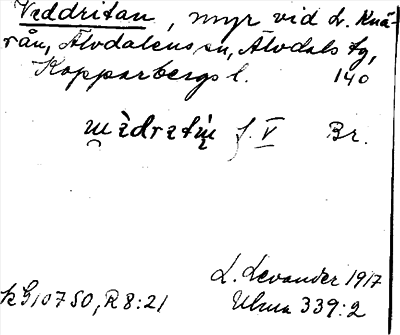 Veddritan, myr vid L. Knä-
rån, Älvdalens sn, Älvdals tg,
Kopparbergs l. 140
f. V Br.
L. Levander 1917
kG10750, R8:21 Ulma 339:2